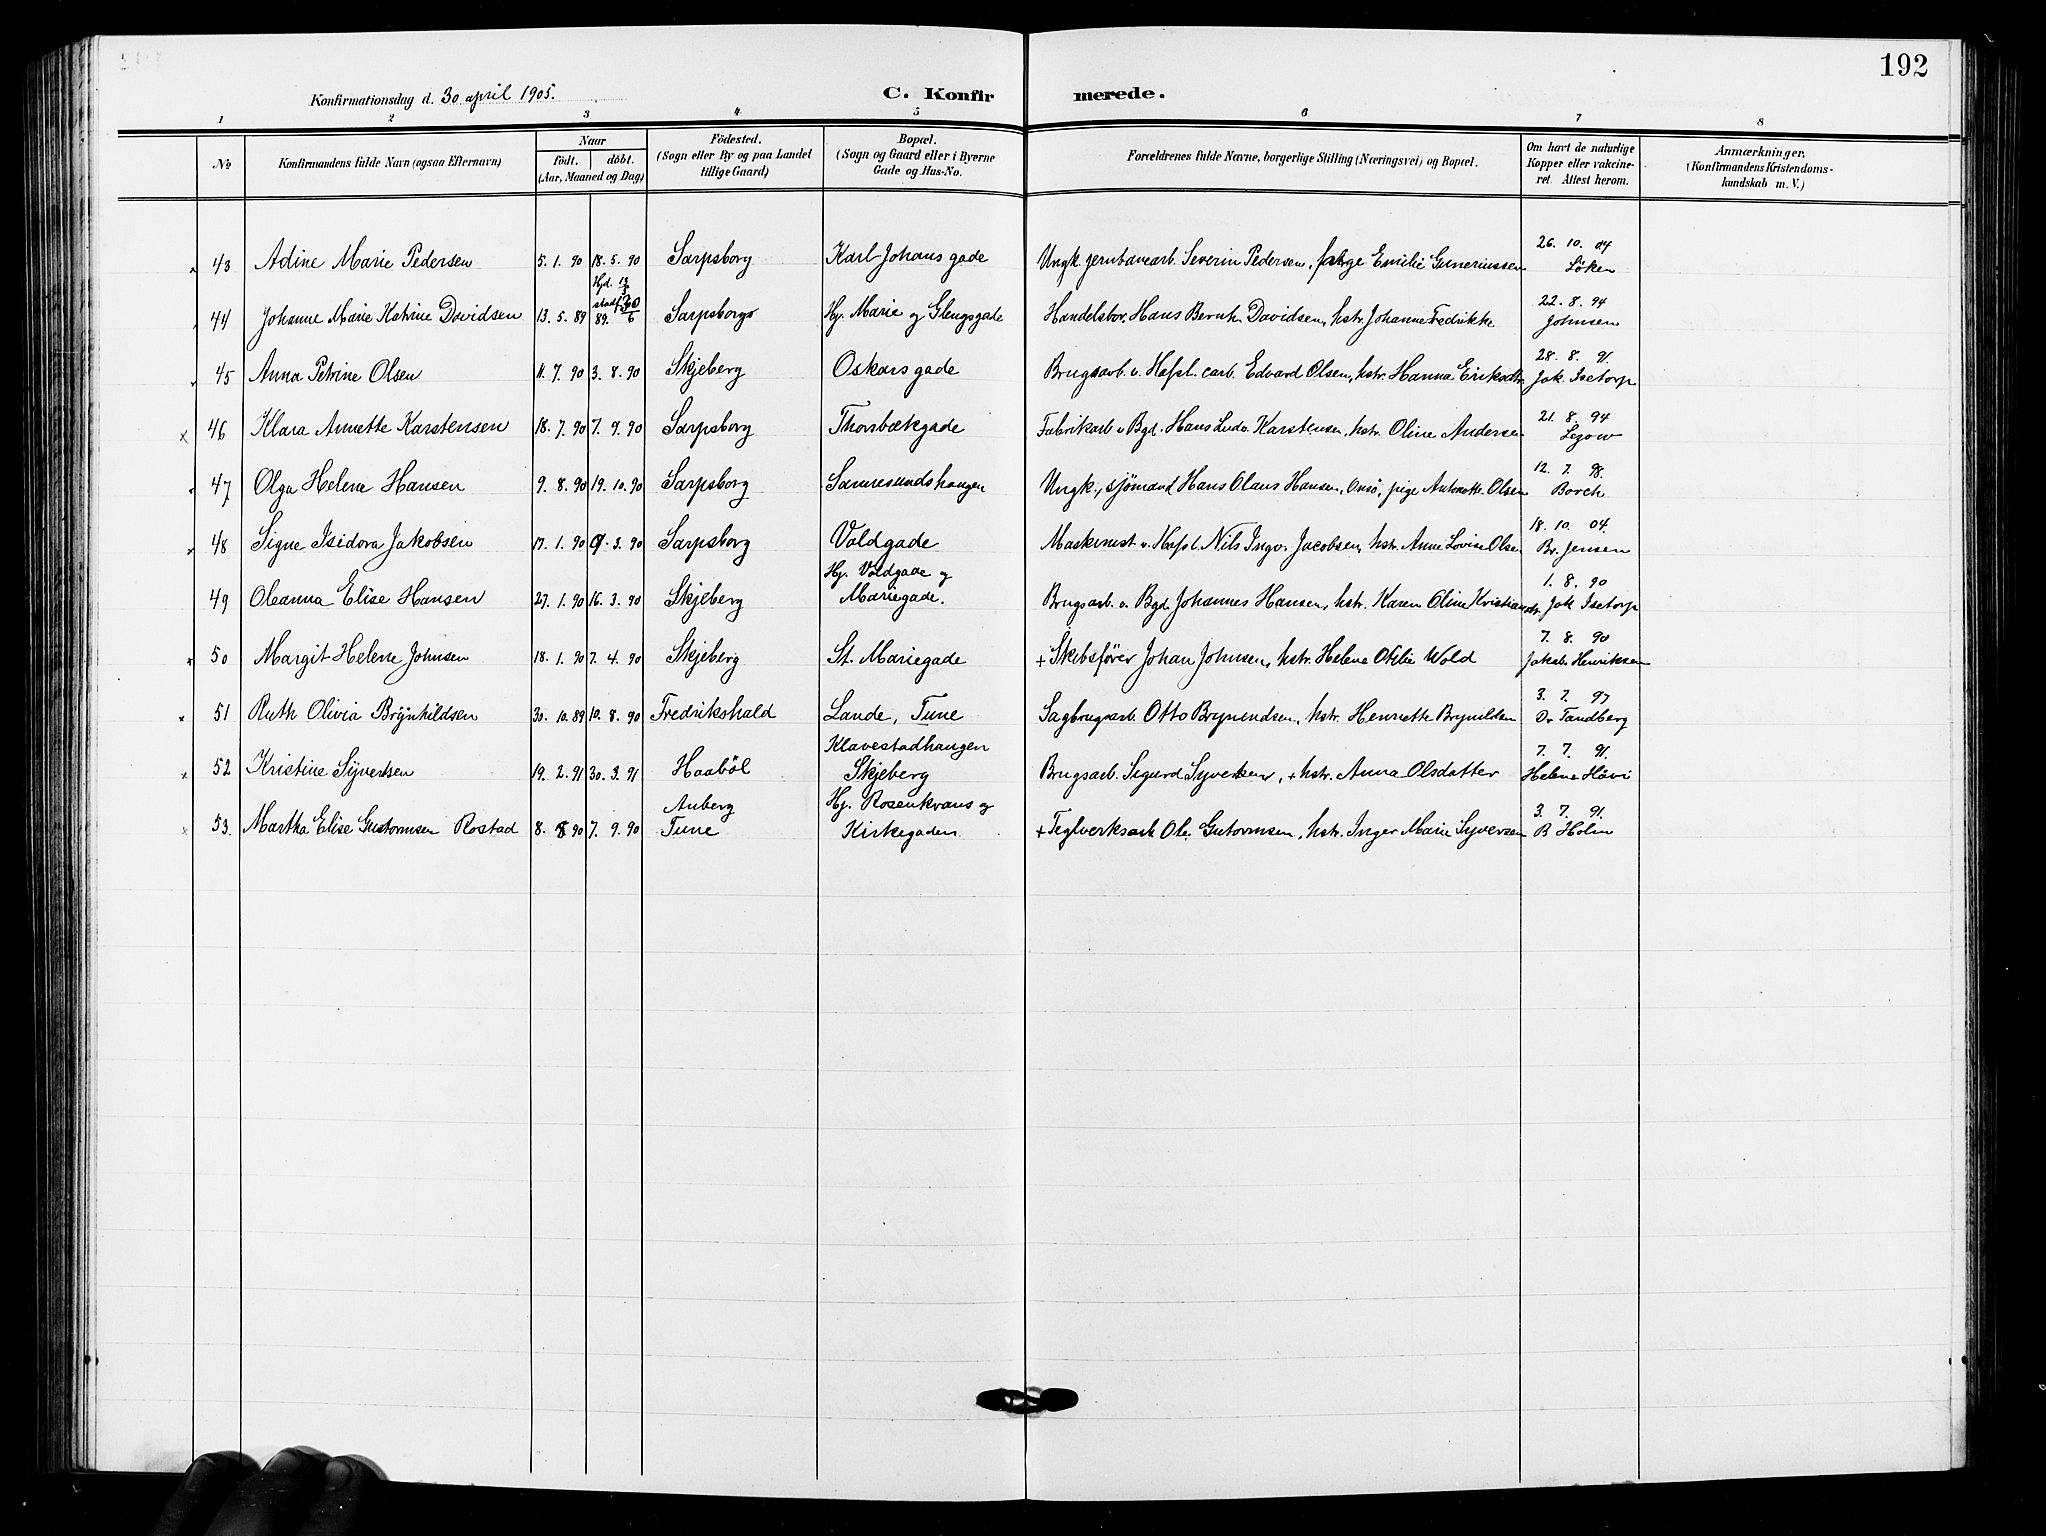 192
Konfirmationsdag d. 30 april 1905.
C. Konfirmerede.
1 2 3 4 5 6 7 8
№
Konfirmandens fulde Navn (ogsaa Efternavn)
Naar
født. døbt.
(Aar, Maaned og Dag)
Fødested.
(Sogn eller By og paa Landet
tillige Gaard)
Bopæl.
(Sogn og Gaard eller i Byerne
Gade og Hus-No.
Forældrenes fulde Navne, borgerlige Stilling (Næringsvei) og Bopæl.
Om havt de naturlige
Kopper eller vakcine-
ret. Attest herom.
Anmærkninger.
(Konfirmandens Kristendoms-
kundskab m. V.)
43 Adine Marie Pedersen 5. 1. 90 18. 5. 90 Sarpsborg Karl Johans gade Ungk jernbanearb. Severin Pedersen, pige Emilie Guneriussen 26. 10. 04 Löken
44 Johanne Marie Katrine Davidsen 13. 5. 89 Hjd. stadf. 30/6 89. Sarpsborg Hj. Marie og Glengsgade Handelsbor. Hans Bernh. Davidsen, hstr. Johanne Fredrikke 22. 8. 94 Johnsen
45 Anna Petrine Olsen 11. 7. 90 3. 8. 90 Skjeberg Oskars gade Brugsarb. v. Hafsl. carb. Edvard Olsen, hstr. Hanna Eriksdtr. 28. 8. 91. Jak. Isetorp
46 Klara Annette Karstensen 18. 7. 90 7. 9. 90 Sarpsborg Thorsbækgade Fabrikarb v Bgd. Hans Ludv. Karstensen, hstr. Oline Andersen 21. 8. 94
47 Olga Helene Hansen 9. 8. 90 19. 10. 90 Sarpsborg Sannesundshaugen Ungk., sjömand Hans Olaus Hansen, Onsö, pige Antonette Olsen 12. 7. 98. Borch
48 Signe Isidora Jakobsen 17. 1. 90 9. 3. 90 Sarpsborg Voldgade Maskinist v. Hafsl. Nils Ingv. Jacobsen, hstr. Anne Lovise Olsen 18. 10. 04. Br. Jensen
49 Oleanna Elise Hansen 27. 1. 90 16. 3. 90 Skjeberg Hj. Voldgade og Mariegade. Brugsarb. v. Bgd. Johannes Hansen, hstr. Karen Oline Kristiansdtr. 1. 8. 90 Jak Isetorp
50 Margit Helene Johnsen 18. 1. 90 7. 4. 90 Skjeberg St. Mariegade + Skibsfører Johan Johnsen, hstr. Helene Otilie Wold 7. 8. 90 Jakob Henriksen
51 Ruth Olivia Brynhildsen 30. 10. 89 10. 8. 90 Fredrikshald Lande, Tune Sagbrugsarb. Otto Brynildsen, hstr. Henriette Brynildsen 3. 7. 97 Dr Tandberg
52 Kristine Syvertsen 19. 2. 91 30. 3. 91 Haaböl Klavestadhaugen Skjeberg Brugsarb. Sigurd Syvertsen, + hstr. Anna Olsdatter 7. 7. 91. Helene Hövi
53. Martha Elise Gustormsen Rostad 8. 8 90 7. 9. 90 Auberg Tune Hj. Rosenkrans og Kirkegaden + Teglverksarb Ole Gutormsen, hstr. Inger Marie Syversen 3. 7. 91. B Holm